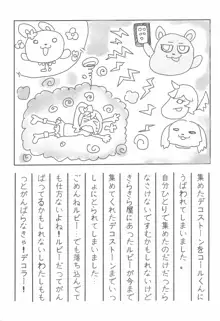 集めたデコストーンをコールくんに
うばわれてしまいました。
自分ひとりで集めたのだけだったら
なさけないですむかもしれないけど
きらきら屋にあったルビーが今まで
集めてくれたデコストーンまでいっ
しょにとられてしまいました
ごめんねルビー…でも落ち込んでて
も仕方ないよね！ルビーだってがん
ばってるかもしれないしわたしもも
っとがんばらなきゃ！デコラー！